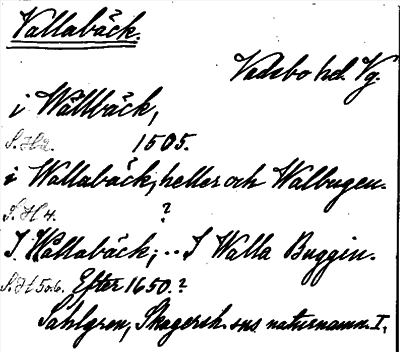 Vallabäck.
Vadsbo hd. Vg.
i Wällbäck,
S. H 2. 1505.
i Wallabäck, heller och Walbugen.
S. H 4. ?
I Wallabäck; .. I Walla Buggin.
S. H 5o6. Efter 1650.?
Sahlgren, Skagersh. sns naturnamn. I,